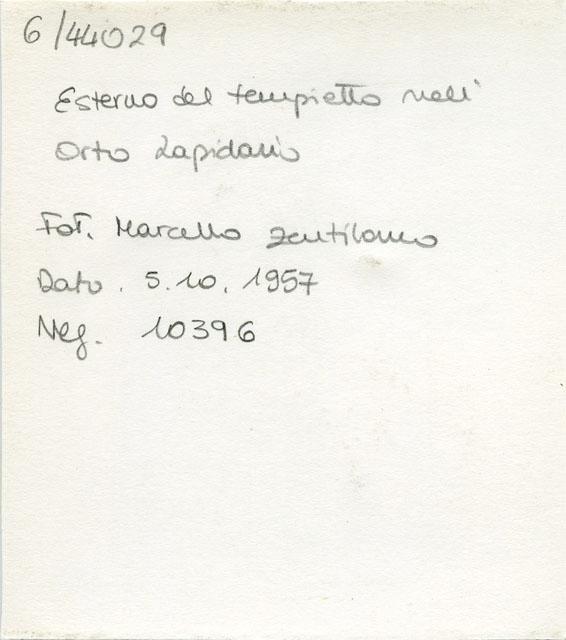 6/44029
Esterno del tempietto nell'
Orto Lapidario
Fot. Marcello Zentilomo
Data. 5.10.1957
Neg. 10396